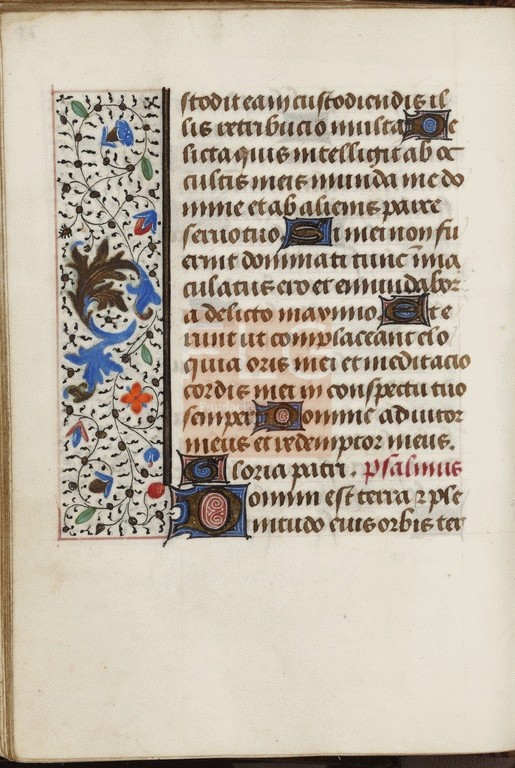 stodit ea in custodiendis il
lis retribucio multa De
licta quis intelligit ab oc
cultis meis munda me do
mine et ab alienis parce
seruo tuo. Si mei non fu
erint dominati tunc īma
culatus ero et emundabor
a delicto maximo. Et e
runt ut complaceant elo
quia oris mei et meditacio
cordis mei in conspectu tuo
semper Domine adiutor
meus et redemptor meus.
Gloria patri. psalmus
Domini est terra ꝛ ple
nitudo eius orbis ter